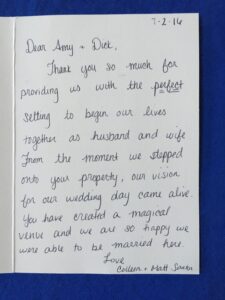 7-2-16
Dear Amy + Dick,
Thank you so much for
providing us with the perfect
setting to begin our lives
together as husband and wife
From the moment we stepped
onto your property, our vision
for our wedding day came alive.
You have created a magical
venue and we are so happy we
were able to be married here.
Love
Colleen + Matt